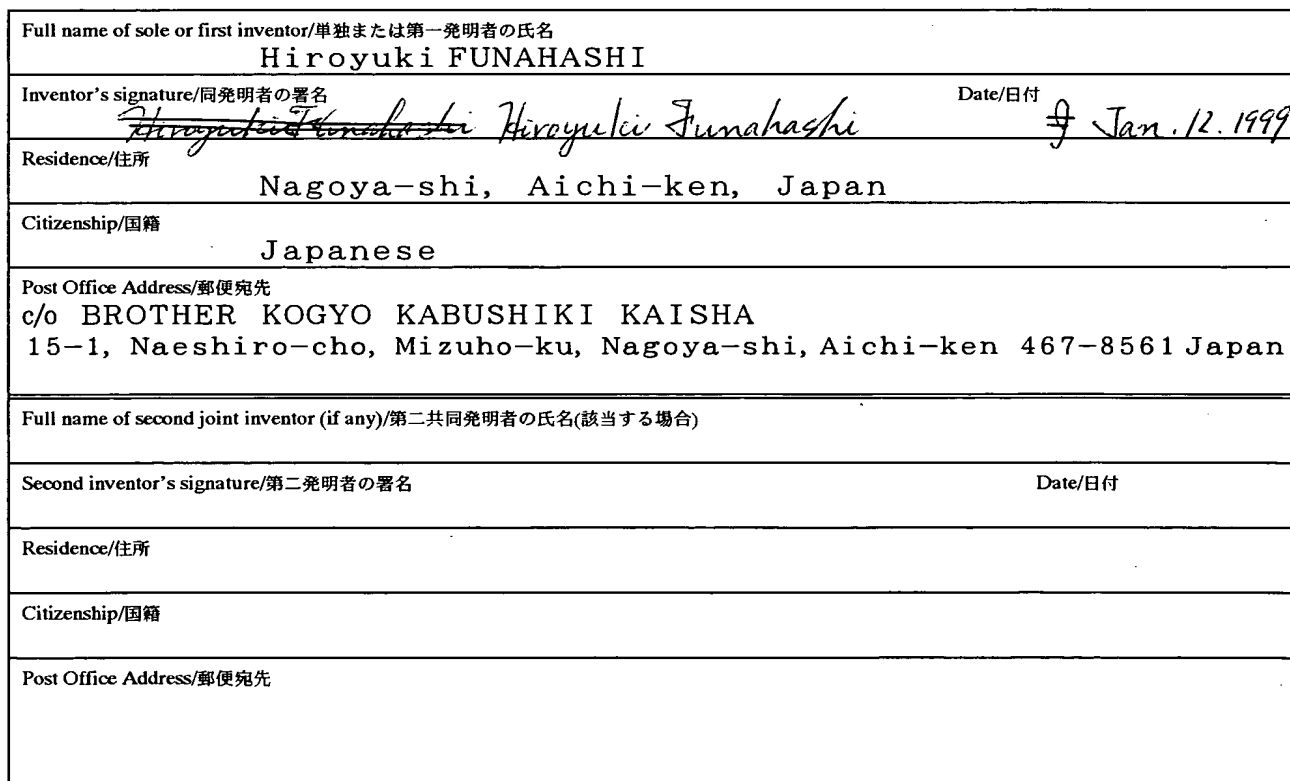 Full name of sole or first inventor/単独または第一発明者の氏名
Hiroyuki FUNAHASHI
Inventor's signature/同発明者の署名 Date/日付
Hiroyuki Funahashi Hiroyuki Funahashi Jan. 12. 1999
Residence/住所
Nagoya-shi, Aichi-ken, Japan
Citizenship/国籍
Japanese
Post Office Address/郵便宛先
c/o BROTHER KOGYO KABUSHIKI KAISHA
15-1, Naeshiro-cho, Mizuho-ku, Nagoya-shi, Aichi-ken 467-8561 Japan
Full name of second joint inventor (if any)/第二共同発明者の氏名(該当する場合)
Second inventor's signature/第二発明者の署名 Date/日付
Residence/住所
Citizenship/国籍
Post Office Address/郵便宛先